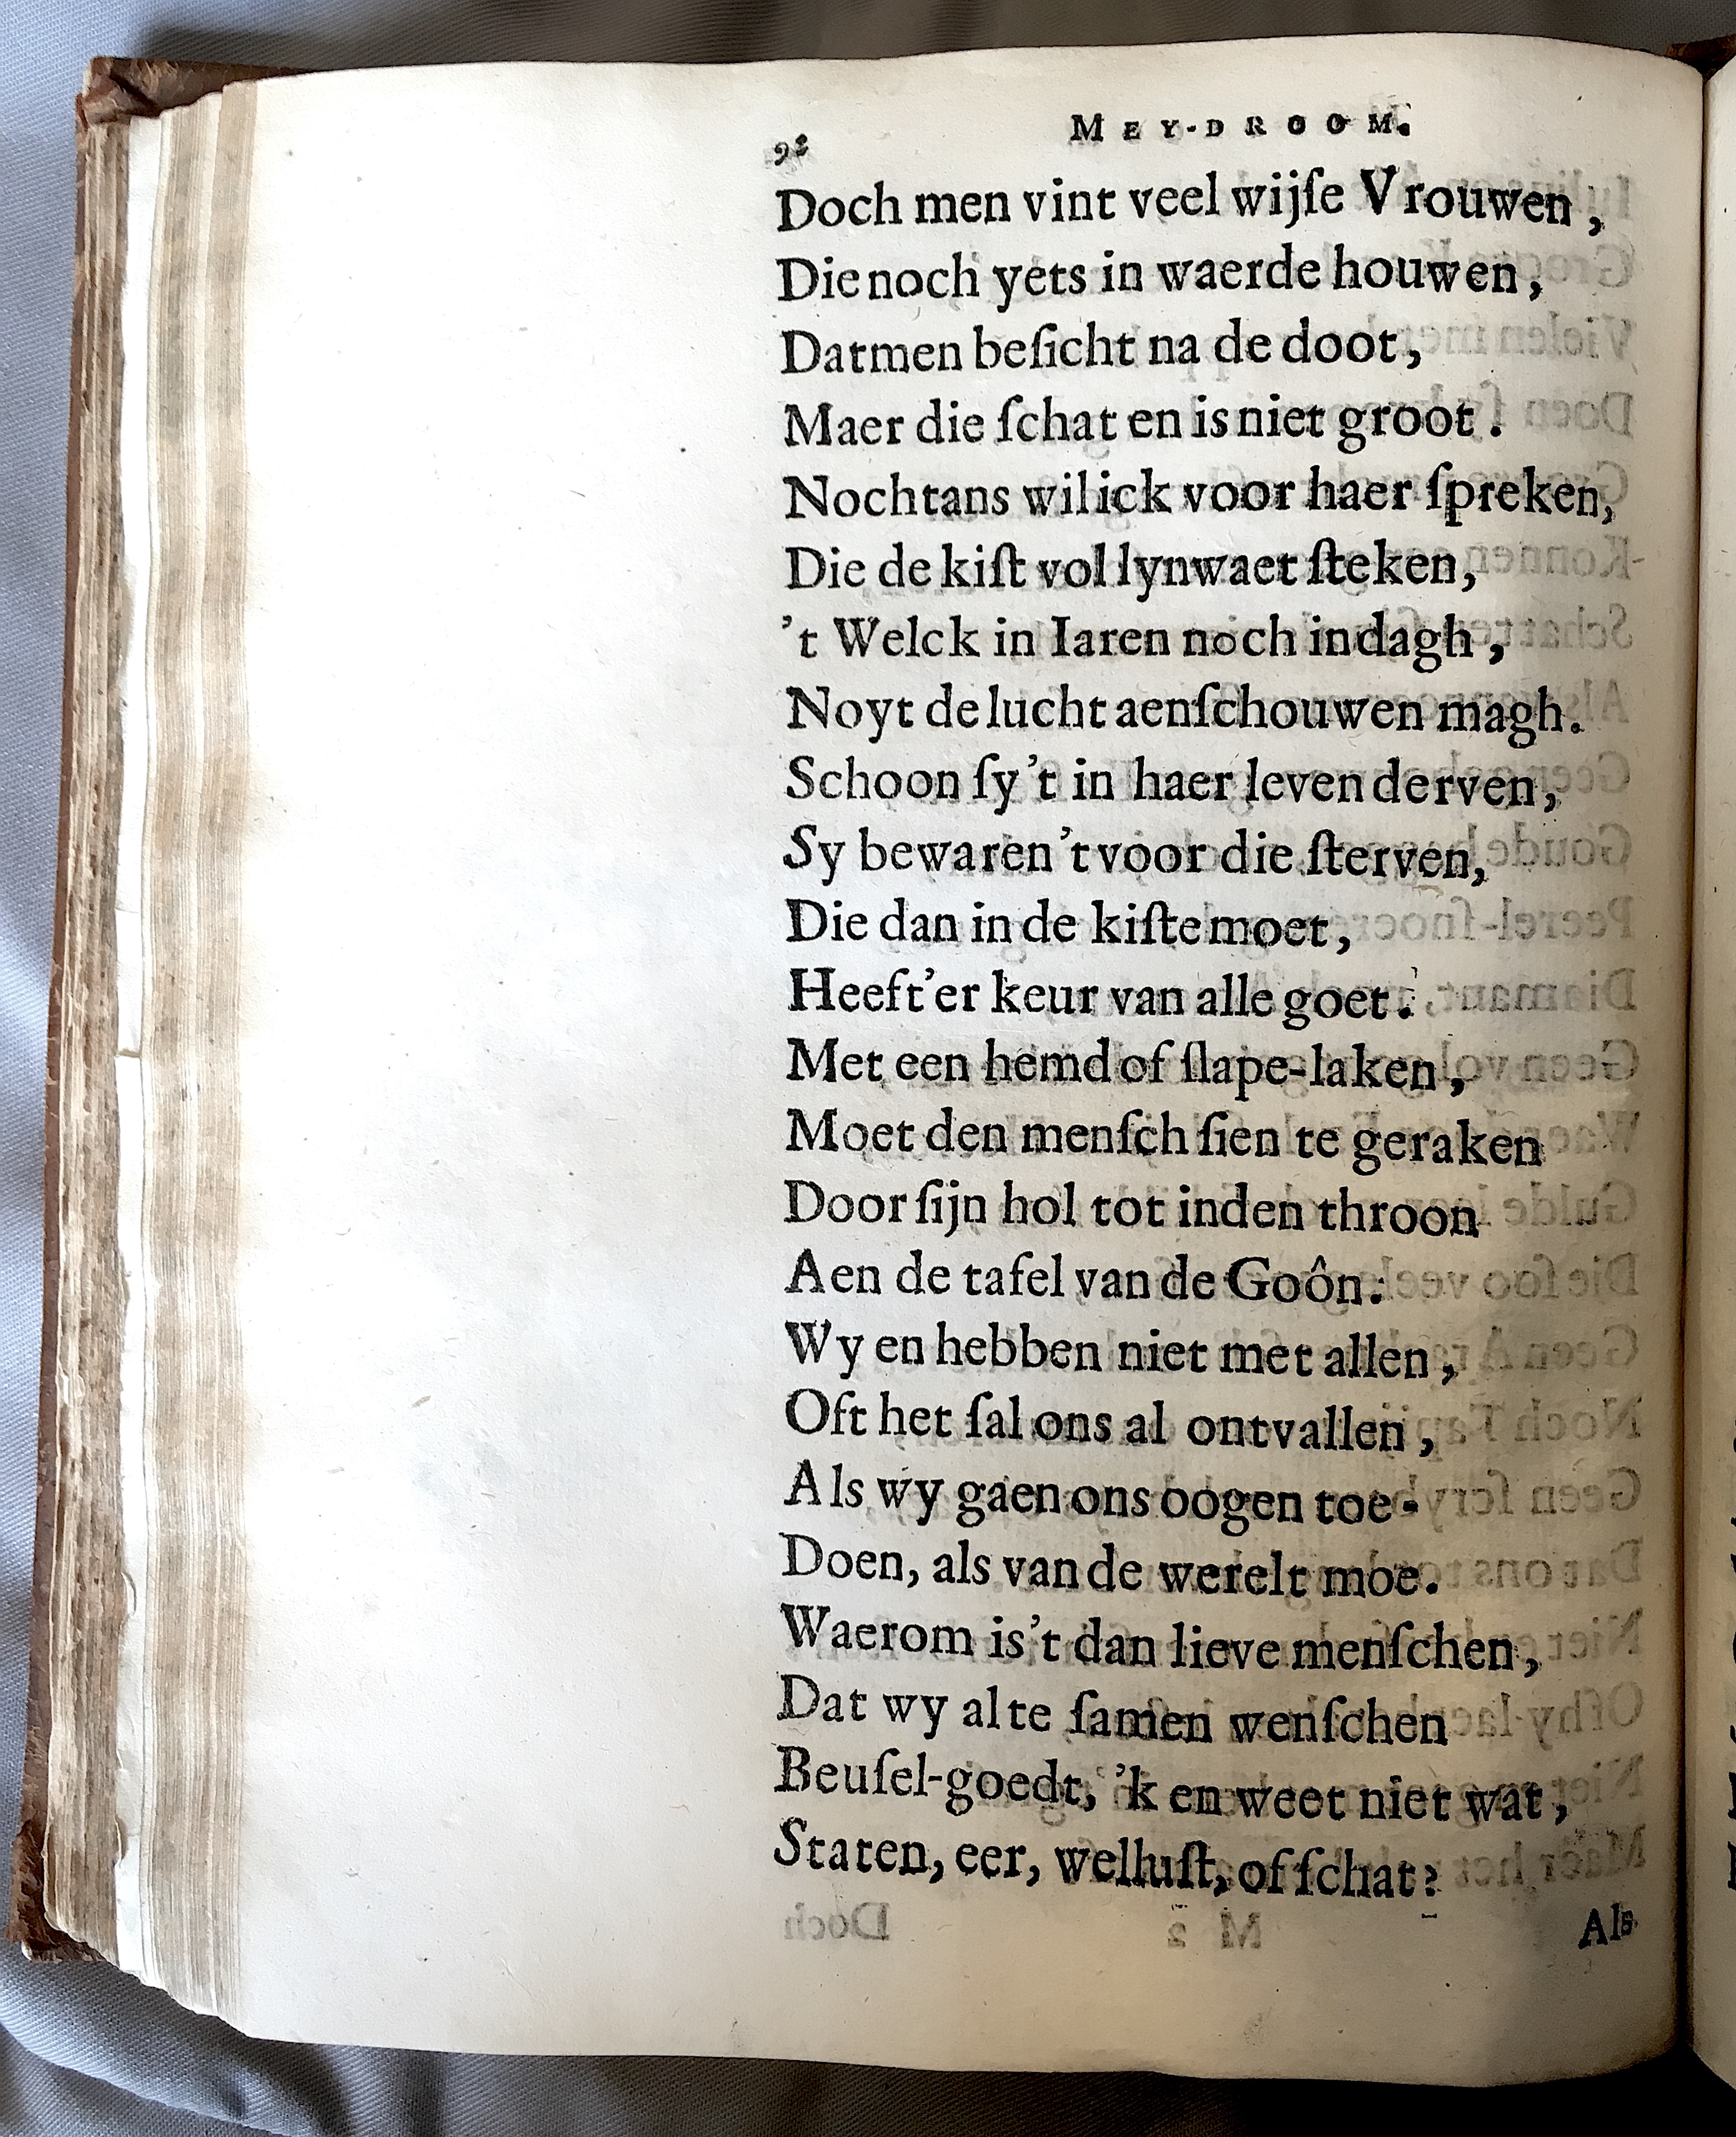 92 MEY-DROOM.
Doch men vint veel wijſe Vrouwen,
Die noch yets in waerde houwen,
Datmen beſicht na de doot,
Maer die ſchat en is niet groot.
Nochtans wil ick voor haer ſpreken,
Die de kiſt vol lynwaet ſteken,
't Welck in Iaren noch in dagh,
Noyt de lucht aenſchouwen magh.
Schoon ſy't in haer leven derven,
Sy bewaren't voor die ſterven,
Die dan in de kiſte moet,
Heeft'er keur van alle goet.
Met een hemd of ſlape-laken,
Moet den menſch ſien te geraken
Door ſijn hol tot inden throon
Aen de tafel van de Goôn:
Wy en hebben niet met allen,
Oft het ſal ons al ontvallen,
Als wy gaen ons oogen toe-
Doen, als van de werelt moe.
Waerom is't dan lieve menſchen,
Dat wy al te ſamen wenſchen
Beuſel-goedt, 'k en weet niet wat,
Staten, eer, welluſt, of ſchat?
Als